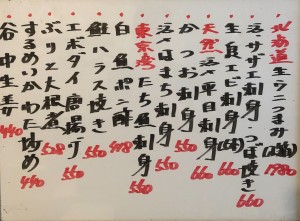 北海道生ウニつまみ(箱)1980
活サザエ刺身・つぼ焼き
生良エビ刺身(5尾)660
天然活〆平目刺身660
かつお刺身550
活はまち刺身550
東京湾たち魚刺身550
白魚ポン酢498
鮭ハラス焼き550
エボダイ唐揚げ550
ぶりと大根煮528
するめいかわた炒め490
谷中生姜440